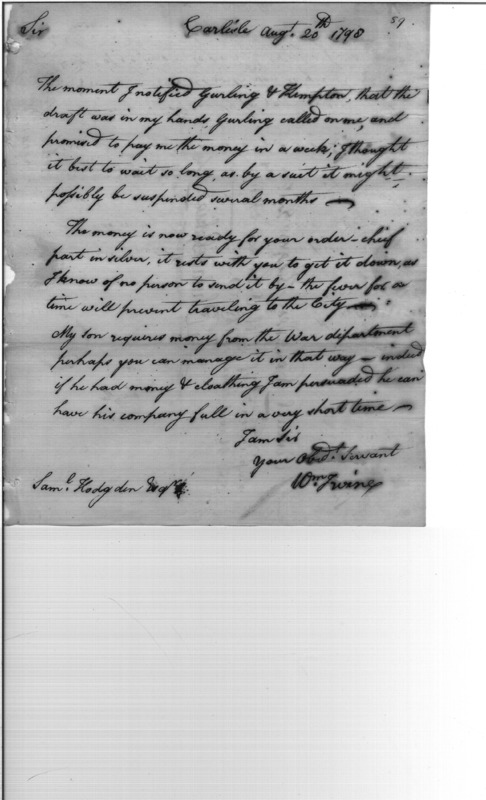 Sir
Carlisle Augt. 20th 1798
59
The moment I notified Gurling & Kempton, that the
draft was in my hands, Gurling called on me, and
promised to pay me the money in a week, I thought
it best to wait so long, as by a suit it might
possibly be suspended several months —
The money is now ready for your order - chief
part in silver, it rests with you to get it down, as
I know of no person to send it by - the fever for a
time will prevent traveling to the City —
My son requires money from the War department
perhaps you can manage it in that way - indeed
if he had money & cloathing I am persuaded he can
have his company full in a very short time —
I am Sir
Your Obedt. Servant
Wm. Irvine
Saml. Hodgden Esqr.